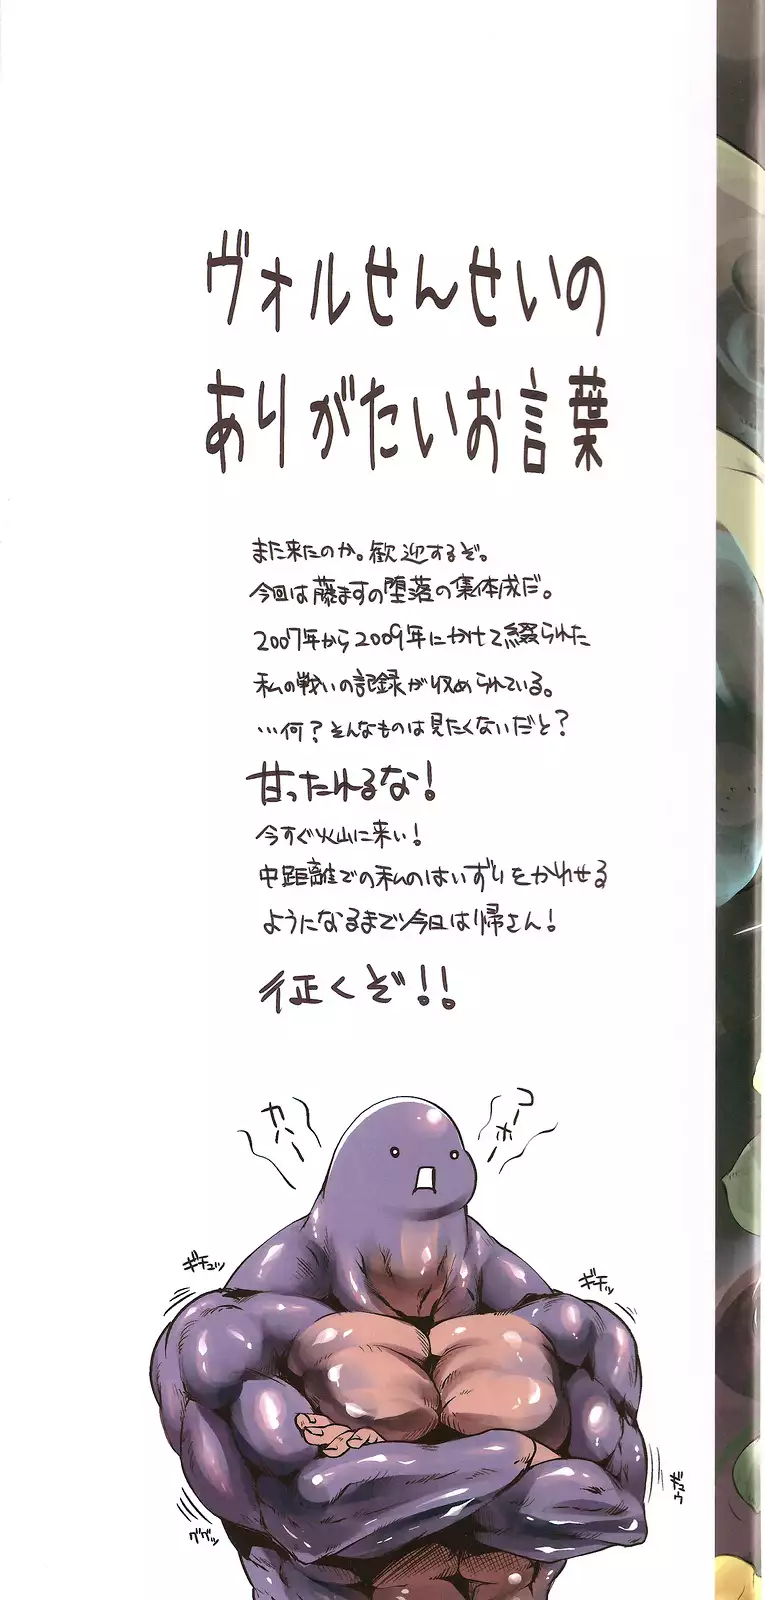 ヴォルせんせいの
ありがたいお言葉
また来たのか。歓迎するぞ。
今回は藤ますの堕落の集体成だ。
2007年から2009年にかけて綴られた
私の戦いの記録が収められている。
…何？そんなものは見たくないだと？
甘ったれるな！
今すぐ火山に来い！
中距離での私のはいずりをかわせる
ようになるまで今日は帰さん！
征くぞ！！
カハー
コーホー
ギチュッ
ギチッ
ググッ